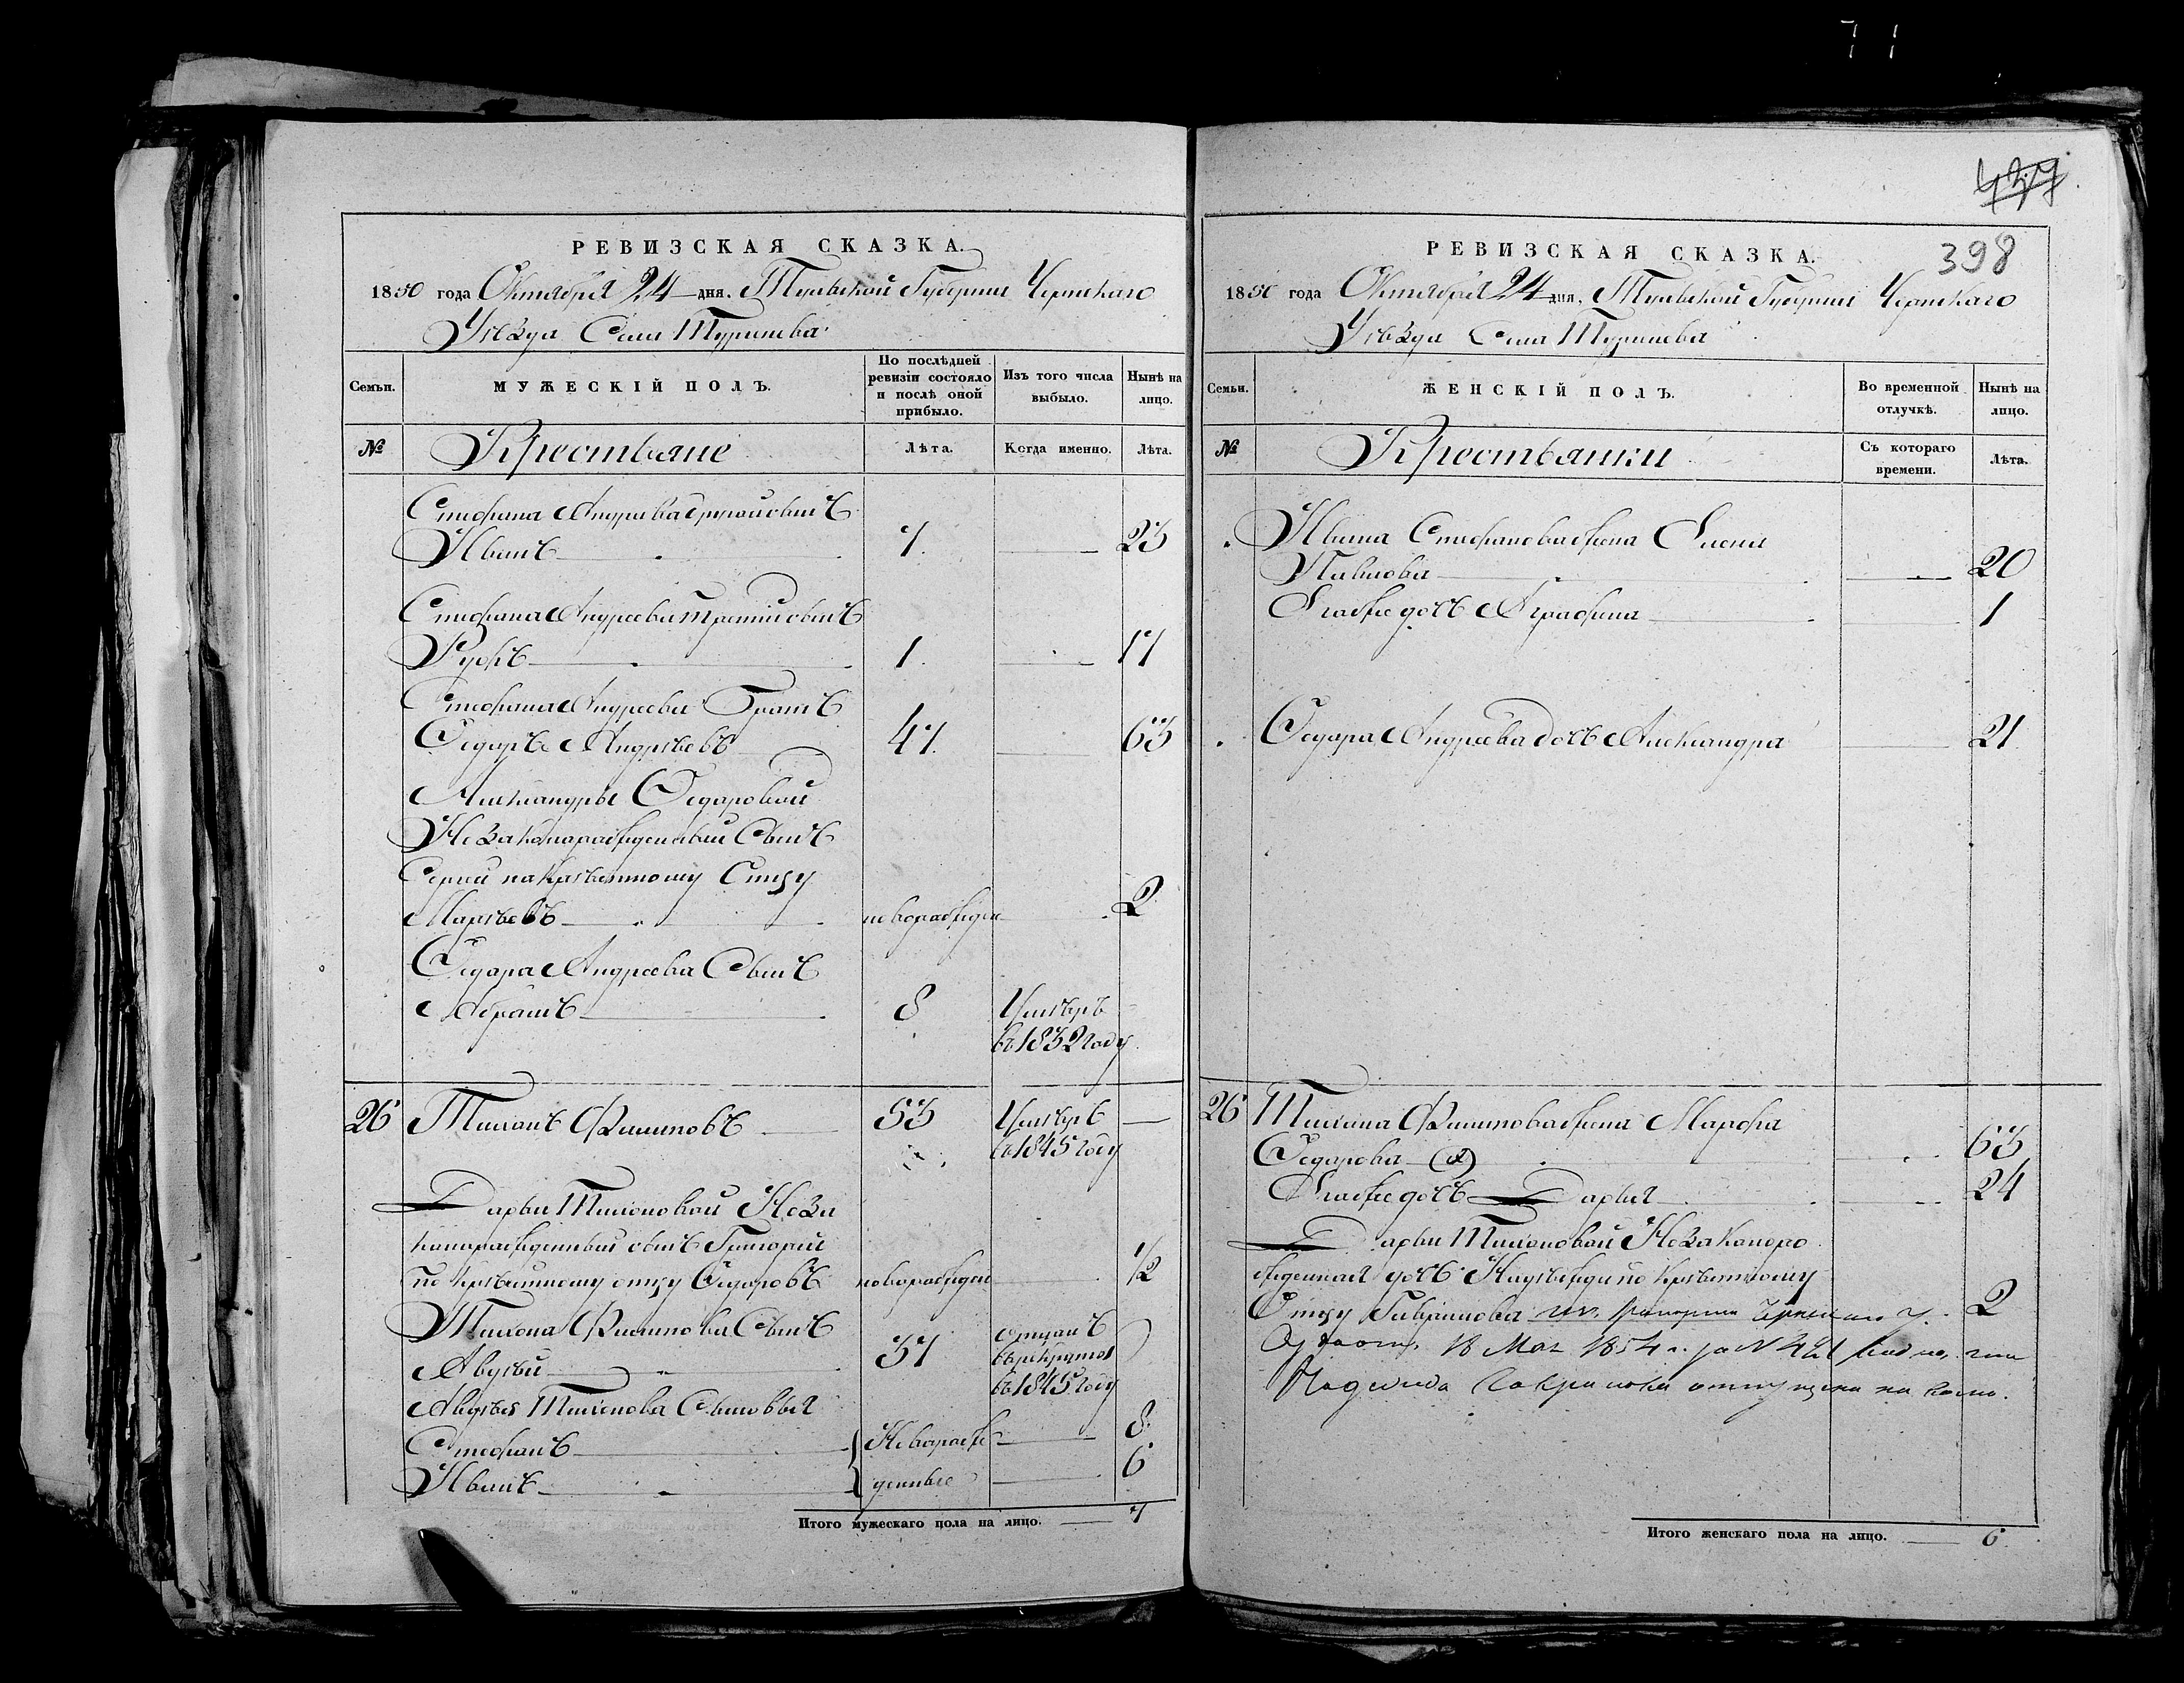 71
РЕВИЗСКАЯ СКАЗКА.
1850 года Октября 24 дня. Тульской Губернiи Чернскаго
Уѣзда Села
МУЖЕСКIЙ ПОЛЪ.
Семьи.
По послѣдней ревизiи состояло и послѣ оной прибыло.
Изъ того числа выбыло.
Нынѣ на лицо.
№ Крестьяне Лѣта. Когда именно. Лѣта.
Стефана Андреева другой сынъ
Иванъ 7. 23
Стефана Андреева третiй сынъ
1. 17
Стефана Андреева Братъ
Федаръ Андрѣевъ 47. 63
Александры Федаровой
Незаконараждённый Сынъ
Сергей по Крѣстному Отцу
новоражден 2
Федара Андреева Сынъ
Абрамъ 8 Умѣръ
въ 1832 году
26 Тихонъ Филиповъ 53 Умѣръ —
въ 1845 году
Дарьи Тихоновой Неза
канаражденный сынъ Григорий
по Крѣстному отцу Федаровъ новоражден 1/2
Тихона Филипова Сынъ отданъ
Авдѣй 37 въ рекруты
въ 1845 году
Авдѣя Тихонова Сыновья
Стефанъ Новораж 8
Иванъ денные 6
Итого мужескаго пола на лицо. 7
398
РЕВИЗСКАЯ СКАЗКА.
1850 года Октября 24 дня, Тульской Губернiи Чернскаго
Уѣзда Села
Семьи.
ЖЕНСКIЙ ПОЛЪ.
Во временной отлучкѣ.
Нынѣ на лицо.
№ Крестьянки Съ котораго времени. Лѣта.
Ивана Стефанова жена Елена
Павлова 20
Ево же дочь Аграфена 1
Федара Андреева дочь Александра 21
26 Тихона Филипова жена Марфа
Федарова 63
Ево же дочь Дарья 24
Дарьи Тихоновой Незаконоро
жденная дочь Надѣжда по Крѣстному
Отцу Гаврилова 2
18 Мая 1854 г. за N 421 что
Надежда Гаврилова отпущена на волю.
Итого женскаго пола на лицо. 6